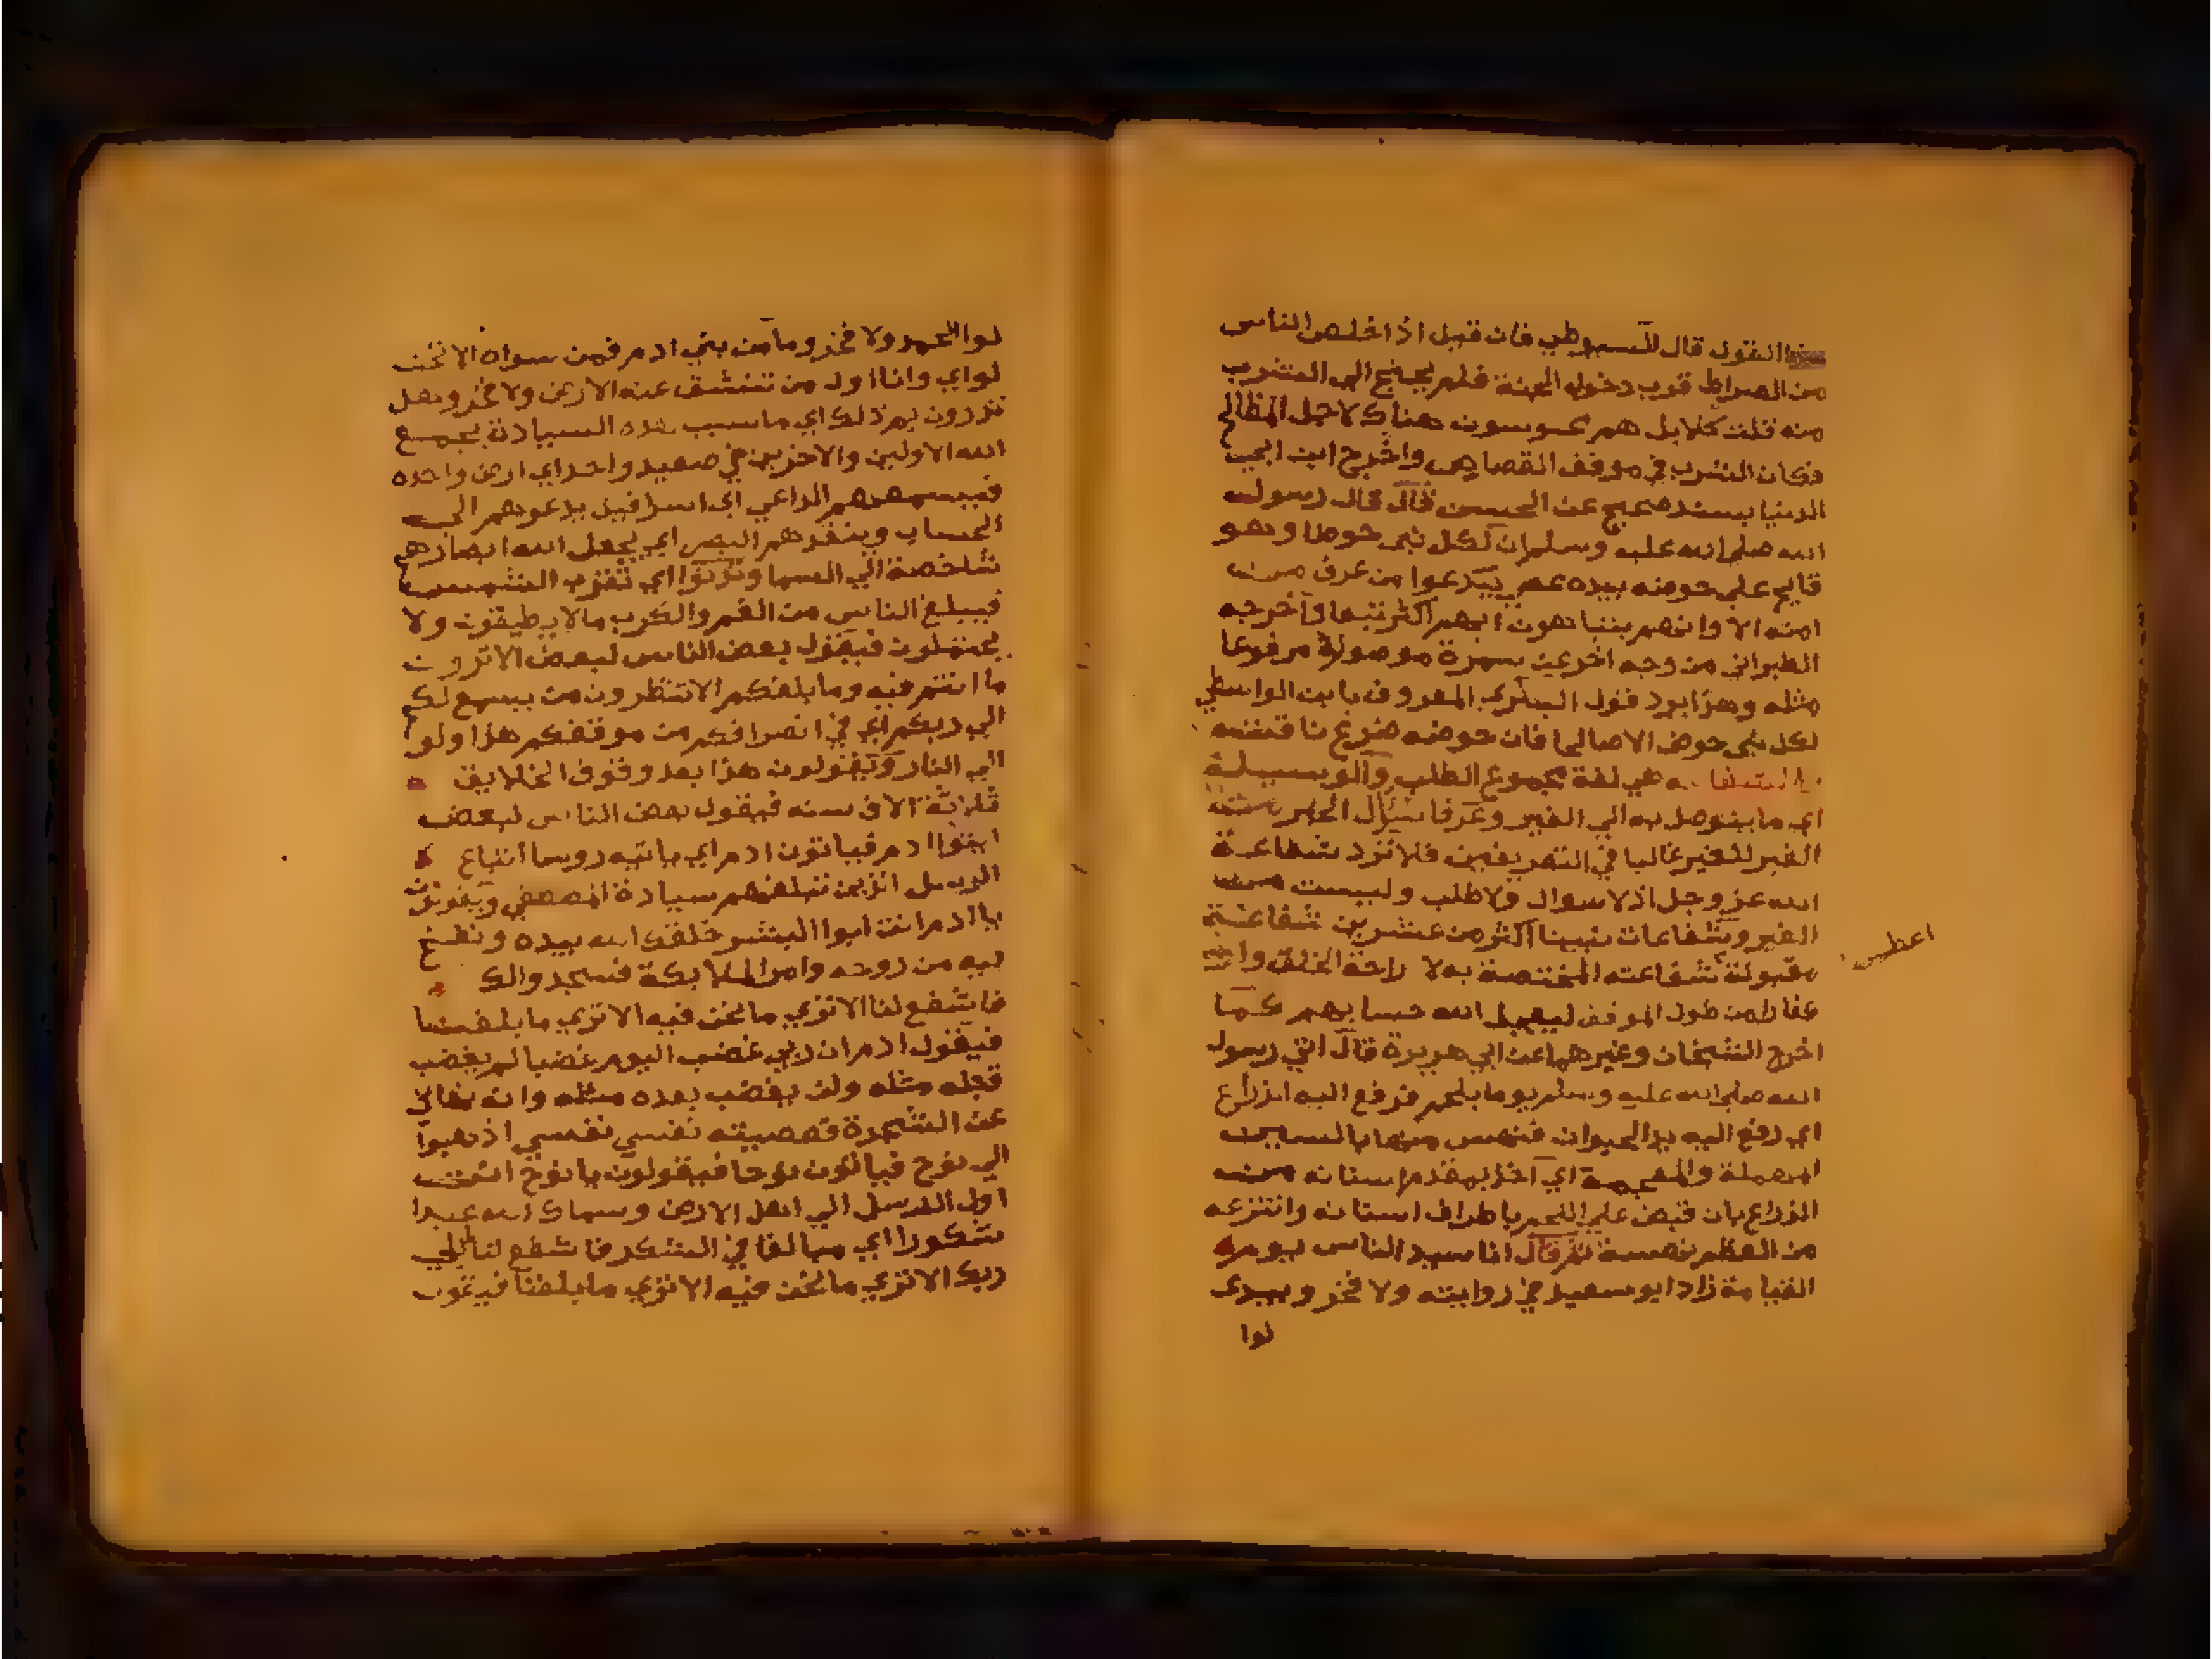 القول قال السيوطي فان قيل اذا خلص الناس
من الصراط قرب دخول الجنة فلم يحتج الي الشرب
منه قلت كلا بل هم محبوسون هناك لاجل المظالم
فكان الشرب في موقف القصاص واخرج ابن ابي
الدنيا بسند صحيح عن الحسن قال قال رسول
الله صلي الله عليه وسلم ان لكل نبي حوضا وهو
قايم علي حوضه بيده عصي يدعوا من عرف من
امته الا وانهم يتباهون ايهم اكثر تبعا واخرجه
الطبراني من وجه اخر عن سمرة موصولا مرفوعا
مثله وهذا يرد قول البكري المعروف بابن الواسطي
لكل نبي حوض الا صالحا فان حوضه ضرع ناقته
الشفاعه هي لغة مجموع الطلب والوسيلة
اي ما يتوصل به الي الغير وعرفا سؤال الخير
الغير للغير غالبا في التعريفين فلا ترد شفاعة
الله عز وجل اذ لا سوال ولا طلب وليست من
الغير وشفاعات نبينا اكثر من عشرين شفاعته
مقبولة شفاعته المختصة به لا راحة الخلق
اعظمن
من طول الموقف ليعجل الله حسابهم كما
اخرج الشيخان وغيرهما عن ابي هريرة قال اتي رسول
الله صلي الله عليه وسلم يوما بلحم فرفع اليه الذراع
اي رفع اليه يد الحيوان فنهس منها بالسين
المهملة والمعجمة اي اخذ بمقدم اسنانه منه
الذراع بان قبض علي اللحم باطراف اسنانه وانتزعه
من العظم نهسة ثم قال انا سيد الناس يوم
القيامة زاد ابو سعيد في روايته ولا فخر وبيدي
لوا
لوا الحمد ولا فخر وما من بني ادم فمن سواه الا تحت
لواي وانا اول من تنشق عنه الارض ولا فخر وهل
تدرون بم ذلك اي ما سبب هذه السيادة يجمع
الله الاولين والاخرين في صعيد واحد اي ارض واحده
فيسمعهم الداعي اي اسرافيل يدعوهم الي
الحساب وينفذهم البصر اي يجعل الله ابصارهم
شاخصة الي السما وتدنوا اي تقرب الشمس
فيبلغ الناس من الغم والكرب ما لا يطيقون ولا
يحتملون فيقول بعض الناس لبعض الا ترون
ما انتم فيه وما بلغكم الا تنظرون من يشفع لكم
الي ربكم اي في انصرافكم من موقفكم هذا ولو
الي النار ويقولون هذا بعد وقوف الخلايق
ثلاثة الاف سنه فيقول بعض الناس لبعض
ايتوا ادم فياتون ادم اي ياتيه روسا اتباع
الرسل الذين تبلغهم سيادة المصطفي ويقولون
يا ادم انت ابوا البشر خلقك الله بيده ونفخ
فيه من روحه وامر الملايكة فسجدوا لك
فاشفع لنا الا تري ما نحن فيه الا تري ما بلغنا
فيقول ادم ان ربي غضب اليوم غضبا لم يغضب
قبله مثله ولن يغضب بعده مثله وانه نهاني
عن الشجرة فعصيته نفسي نفسي اذهبوا
الي نوح فياتون نوحا فيقولون يا نوح انت
اول الرسل الي اهل الارض وسماك الله عبدا
شكورا اي مبالغا في الشكر فاشفع لنا الي
ربك الا تري ما نحن فيه الا تري ما بلغنا فيقول